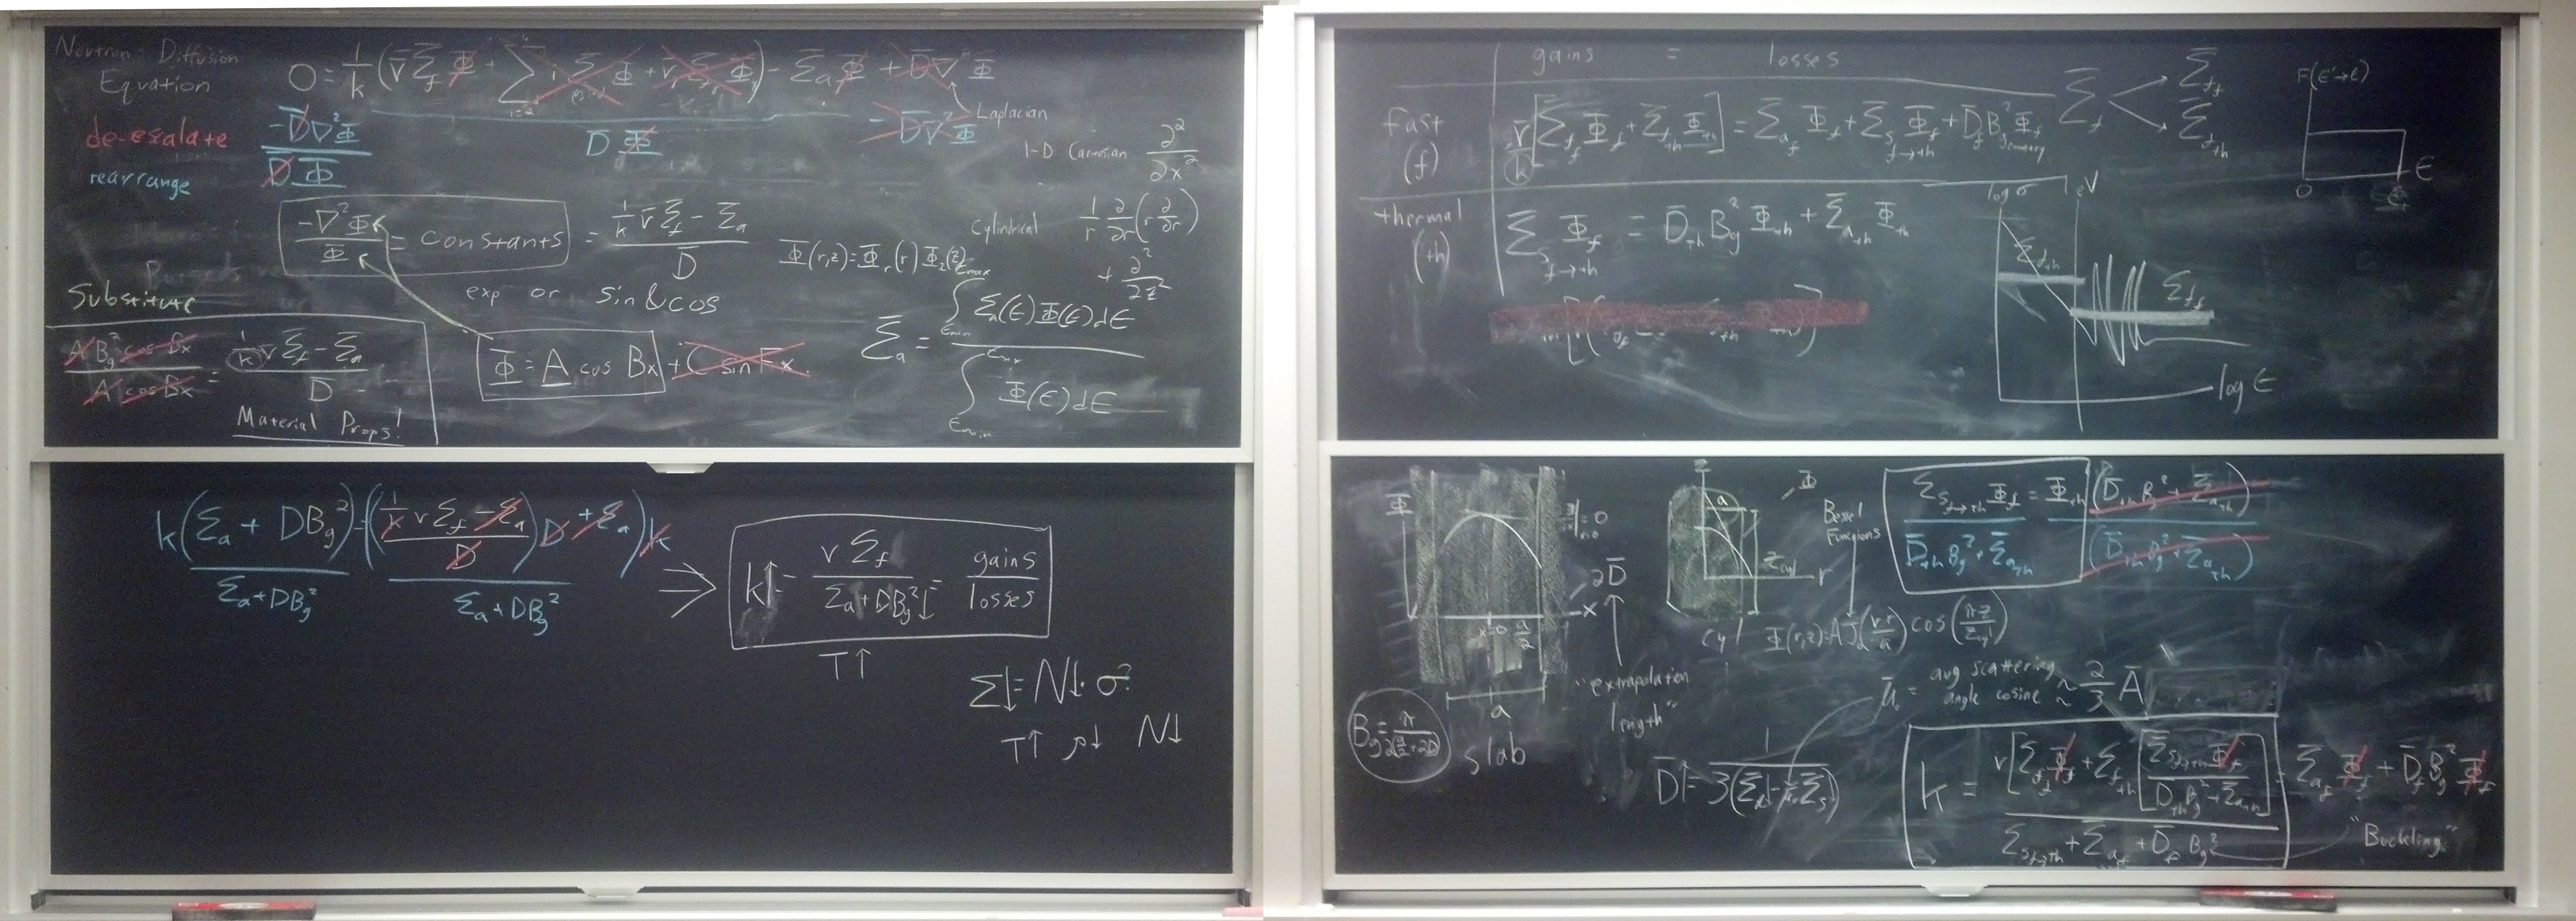 Neutron Diffusion
Equation
0 = 1/k (ν̄ Σ̄_f Φ + Σ i Σ Φ + ν Σ Φ) - Σ̄_a Φ + D̄∇²Φ
Laplacian
de-esalate
rearrange
-D̄∇²Φ / D̄Φ
D̄ Φ
-D̄∇²Φ
1-D Cartesian ∂²/∂x²
-∇²Φ / Φ = constants = (1/k ν̄ Σ̄_f - Σ̄_a) / D̄
Cylindrical 1/r ∂/∂r (r ∂/∂r) + ∂²/∂z²
Φ(r,z) = Φ_r(r) Φ_z(z)
exp or sin & cos
Substitute
A B_g² cos Bx / A cos Bx = (1/k ν Σ̄_f - Σ̄_a) / D
Material Props!
Φ = A cos Bx + C sin Fx
Σ̄_a = ∫_Emin^Emax Σ_a(E) Φ(E) dE / ∫_Emin^Emax Φ(E) dE
k(Σ_a + DB_g²) = ((1/k ν Σ_f - Σ_a) / D · D + Σ_a) k
Σ_a + DB_g²
Σ_a + DB_g²
⇒ k↑ = ν Σ_f / (Σ_a + DB_g²↓) = gains / losses
T↑
Σ↓ = N↓ · σ?
T↑ ρ↓ N↓
gains = losses
fast (f)
ν̄/k [Σ̄_f_f Φ_f + Σ̄_f_th Φ_th] = Σ̄_a_f Φ_f + Σ̄_s_f→th Φ_f + D̄_f B_g² Φ_f
geometry
Σ̄_f
Σ̄_f_f
Σ̄_f_th
F(E'→E)
0
E
thermal (th)
Σ_s_f→th Φ_f = D̄_th B_g² Φ_th + Σ̄_a_th Φ_th
log σ
1 eV
Σ_f_th
Σ_f_f
log E
Φ
x
x=0
a/2
2D̄
"extrapolation
length"
a
slab
B_g = π / 2(a/2 + 2D)
z
a
Φ
z_cyl
r
cyl
Bessel
Functions
Φ(r,z) = A J(νr/a) cos(πz/z_cyl)
Σ_s_f→th Φ_f = Φ_th (D̄_th B_g² + Σ̄_a_th)
D̄_th B_g² + Σ̄_a_th
(D̄_th B_g² + Σ̄_a_th)
μ̄_0 = avg scattering angle cosine ≈ 2/3 Ā
k = ν[Σ_f_f Φ_f + Σ_f_th [Σ̄_s_f→th Φ_f / (D̄_th B_g² + Σ̄_a_th)]] = Σ̄_a_f Φ_f + D̄_f B_g² Φ_f
Σ̄_s_f→th + Σ̄_a_f + D̄_f B_g²
"Buckling"